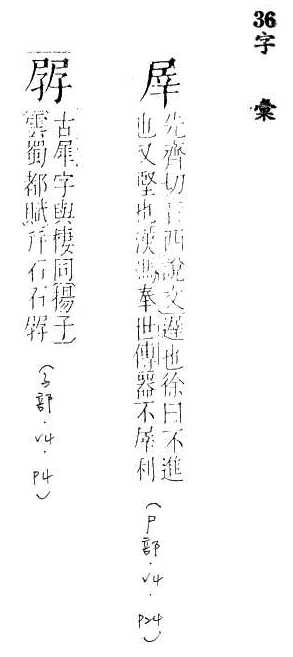 36字 彙
屖
先齊切音西說文遲也徐曰不進
也又堅也漢馮奉世傳器不屖利
(尸部.V4.P24)
古犀字與棲同揚子
雲蜀都賦
(子部.V4.P4)